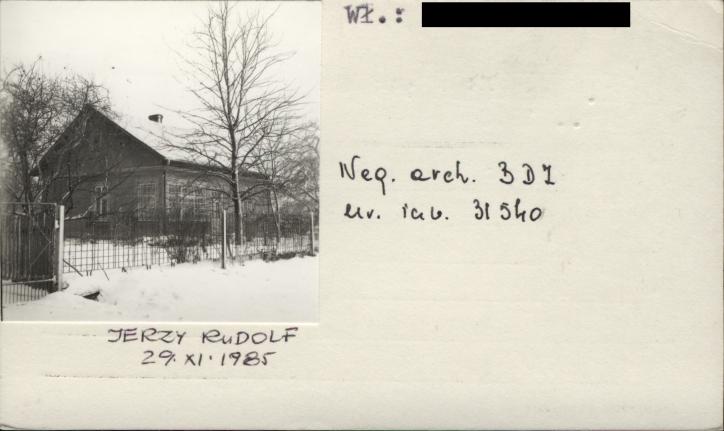 Wł.:
Neg. arch. BDZ
nr. inw. 31540
JERZY RUDOLF
29.XI.1985